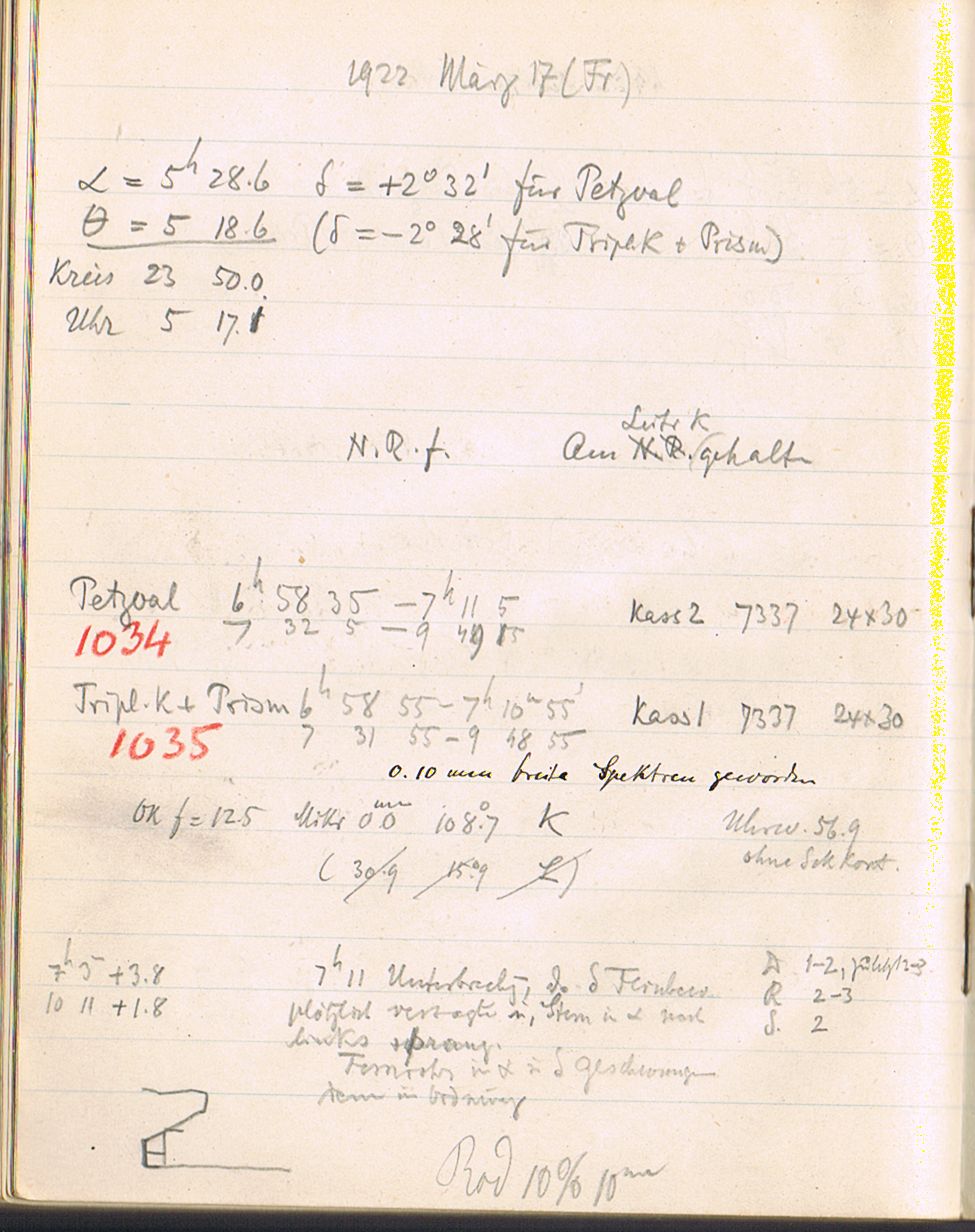 1922 März 17 (Fr)
α = 5h 28.6 δ = +2° 32' für Petzval
θ = 5 18.6 (δ = −2° 28' für Tripl.K + Prism)
Kreis 23 50.0
Uhr 5 17.1
Leitr K
N.R.f. Am N.R. gehalten
Petzval 6h 58 35 − 7h 11 5 Kass 2 7337 24×30
1034 7 32 5 − 9 49 15
Tripl.K + Prism 6h 58 55 − 7h 10m 55s Kass 1 7337 24×30
1035 7 31 55 − 9 48 55
0.10 mm breite Spektren geworden
Ok f = 12.5 Mikr 0.0mm 108.°7 K Uhrw. 56.9
(30.9 15.°9 L) ohne Sek Kont.
7h 5 +3.8 7h 11 Unterbrechg, da δ Feinbew D 1-2, zuletzt 2-3
10 11 +1.8 plötzlich versagte u, Stern in α nach R 2-3
links sprang. S. 2
Fernrohr in α u δ geschwungen
dann in Ordnung
Rod 10% 10m